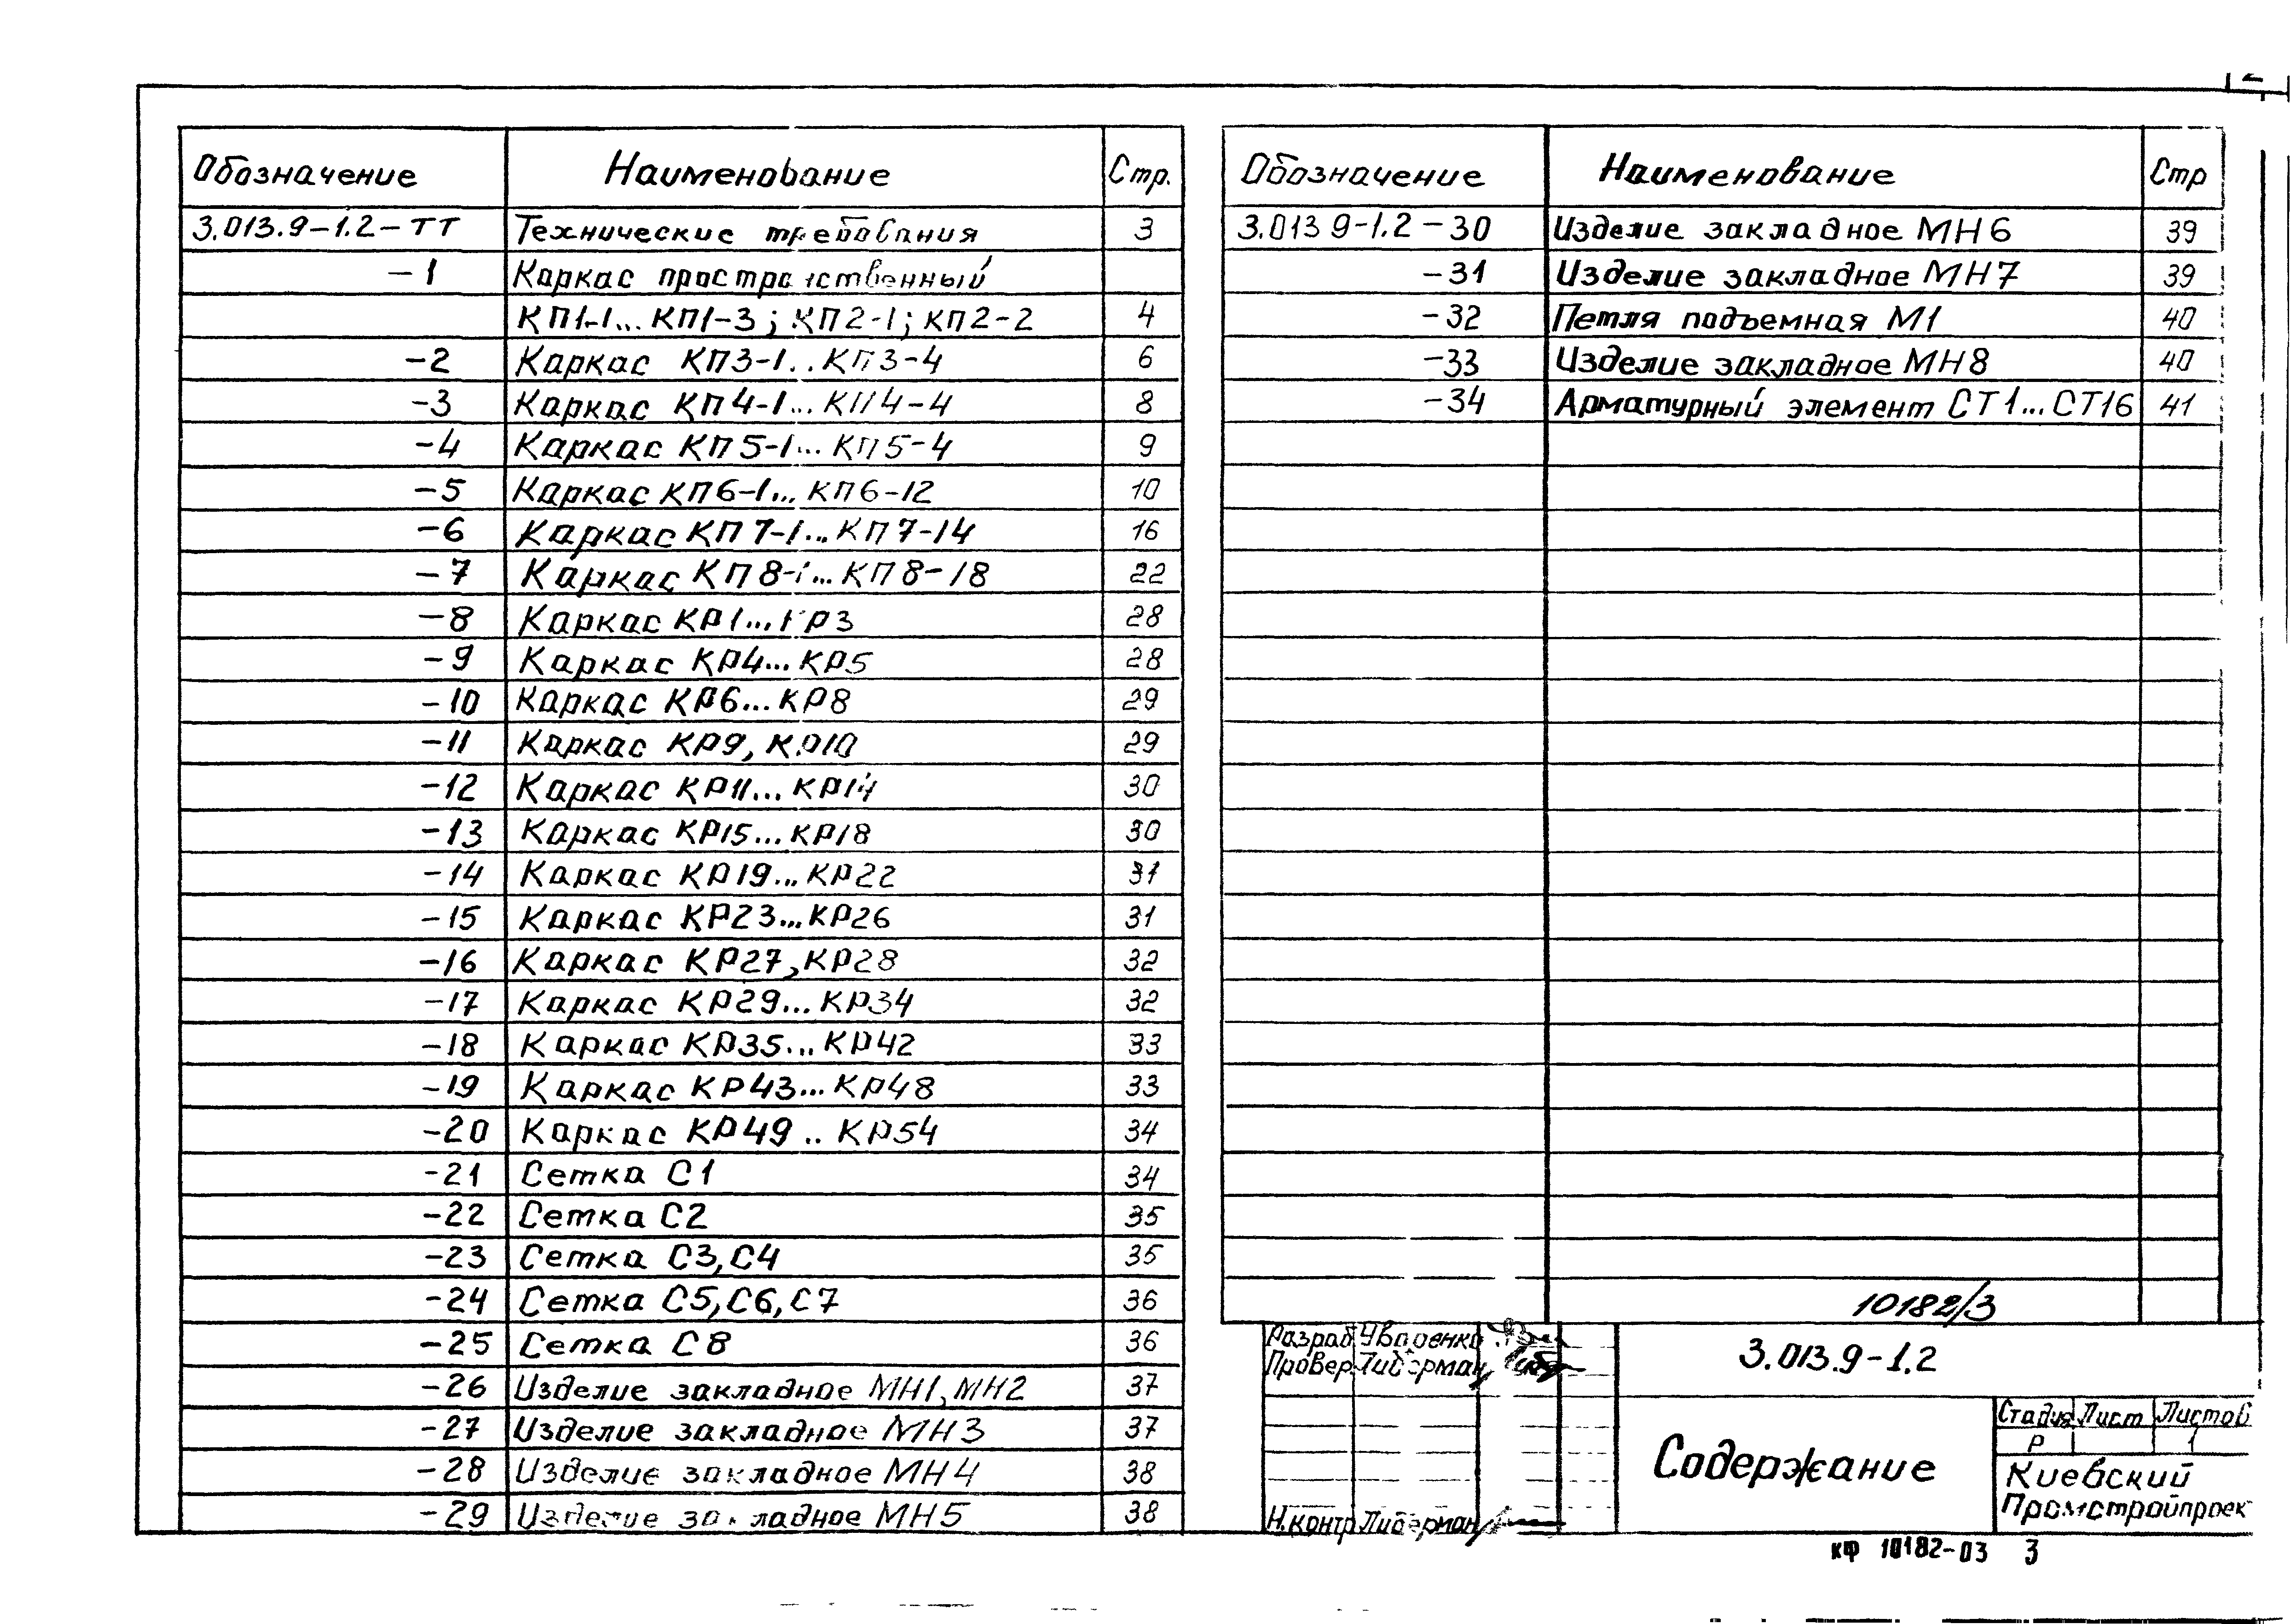 Обозначение Наименование Стр.
3.013.9-1.2-ТТ Технические требования 3
-1 Каркас пространственный
КП1-1...КП1-3; КП2-1; КП2-2 4
-2 Каркас КП3-1..КП3-4 6
-3 Каркас КП4-1...КП4-4 8
-4 Каркас КП5-1...КП5-4 9
-5 Каркас КП6-1...КП6-12 10
-6 Каркас КП7-1...КП7-14 16
-7 Каркас КП8-1...КП8-18 22
-8 Каркас КР1...КР3 28
-9 Каркас КР4...КР5 28
-10 Каркас КР6...КР8 29
-11 Каркас КР9, КР10 29
-12 Каркас КР11...КР14 30
-13 Каркас КР15...КР18 30
-14 Каркас КР19...КР22 31
-15 Каркас КР23...КР26 31
-16 Каркас КР27, КР28 32
-17 Каркас КР29...КР34 32
-18 Каркас КР35...КР42 33
-19 Каркас КР43...КР48 33
-20 Каркас КР49..КР54 34
-21 Сетка С1 34
-22 Сетка С2 35
-23 Сетка С3, С4 35
-24 Сетка С5, С6, С7 36
-25 Сетка С8 36
-26 Изделие закладное МН1, МН2 37
-27 Изделие закладное МН3 37
-28 Изделие закладное МН4 38
-29 Изделие закладное МН5 38
Обозначение Наименование Стр
3.013 9-1.2-30 Изделие закладное МН6 39
-31 Изделие закладное МН7 39
-32 Петля подъемная М1 40
-33 Изделие закладное МН8 40
-34 Арматурный элемент СТ1...СТ16 41
10182/3
Разраб.
Провер. Либерман
Н.контр Либерман
3.013.9-1.2
Содержание
Стадия Лист Листов
Р 1
Киевский
Промстройпроек
КФ 10182-03 3